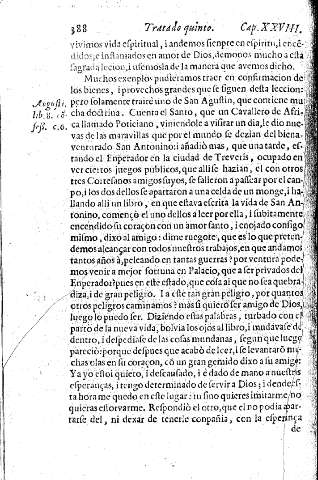 388 Tratado quinto. Cap. XXVIII.
vivimos vida espiritual, i andemos sienpre en espiritu, i encē-
didos, e inflamados en amor de Dios, demonos mucho a esta
sagrada lecion, i usemosla de la manera que avemos dicho.
Muchos exenplos pudieramos traer en confirmacion de
los bienes, i provechos grandes que se siguen desta lecion:
Augusti. pero solamente traire uno de San Agustin, que contiene mu-
lib. 8. cō- cha dotrina. Cuenta el Santo, que un Cavallero de Afri-
fess. c. 6. ca llamado Poticiano, viniendole a visitar un dia, le dio nue-
vas de las maravillas que por el mundo se dezian del biena-
venturado San Antonino: i añadio mas, que una tarde, es-
tando el Enperador en la ciudad de Treveris, ocupado en
ver ciertos juegos publicos, que alli se hazian, el con otros
tres Cortesanos amigos suyos, se salieron a passear por el can-
po, i los dos dellos se apartaron a una celda de un monge, i ha-
llando alli un libro, en que estava escrita la vida de San An-
tonino, començò el uno dellos a leer por ella, i subitamente
encendido su coraçon con un amor santo, i enojado consigo
mismo, dixo al amigo: dime ruegote, que es lo que preten-
demos alcançar con todos nuestros trabajos, en que andamos
tantos años à, peleando en tantas guerras? por ventura pode-
mos venir a mejor fortuna en Palacio, que a ser privados del
Enperador? pues en este estado, que cosa ai que no sea quebra-
diza, i de gran peligro. I a este tan gran peligro, por quantos
otros peligros caminamos? mas si quiero ser amigo de Dios,
luego lo puedo ser. Diziendo estas palabras, turbado con el
parto de la nueva vida, bolvia los ojos al libro, i mudavase de
dentro, i despedíase de las cosas mundanas, segun que luego
pareciò: porque despues que acabò de leer, i se levantarō mu-
chas olas en su coraçon, cō un gran gemido dixo a su amigo:
Ya yo estoi quieto, i descansado, i è dado de mano a nuestras
esperanças, i tengo determinado de servir a Dios; i desde es-
ta hora me quedo en este lugar: tu sino quieres imitarme, no
quieras estorvarme. Respondiò el otro, que el no podia apar-
tarse del, ni dexar de tenerle conpañia, con la esperança
de